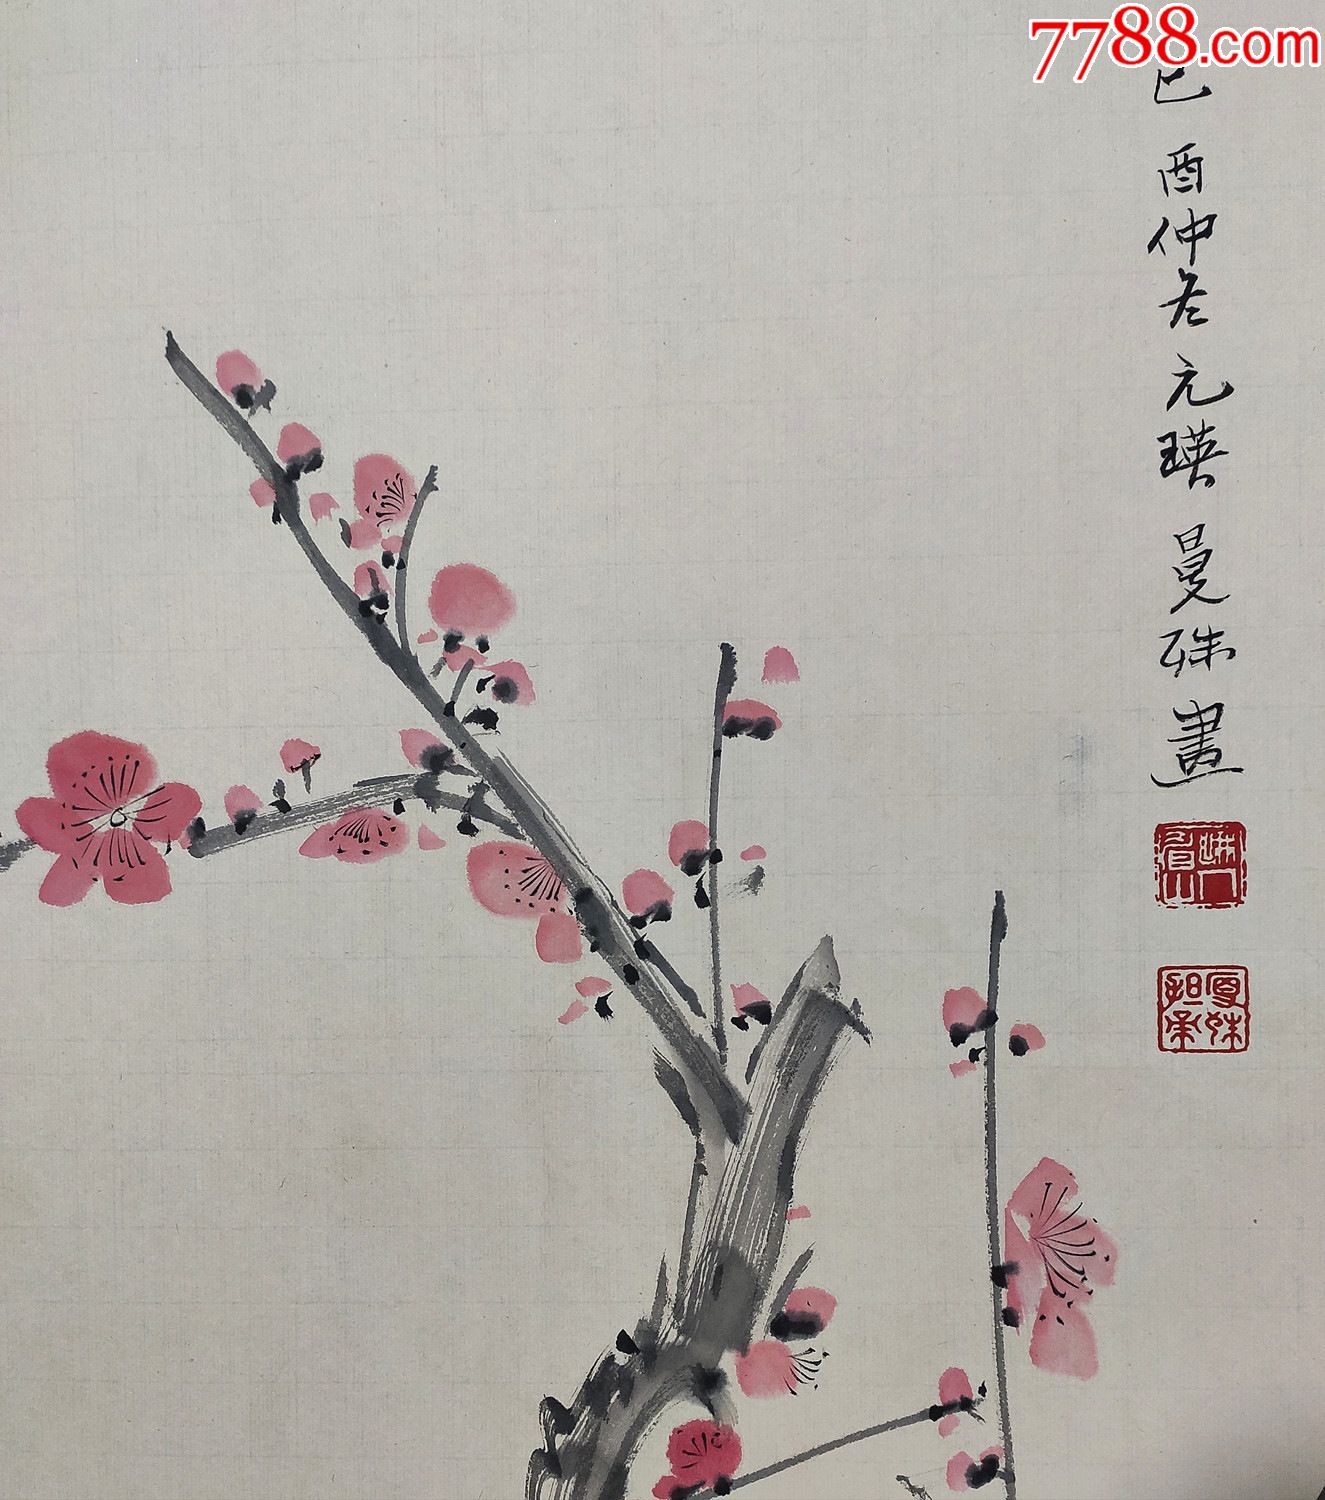 7788.com
己酉仲冬元瑛曼殊畫